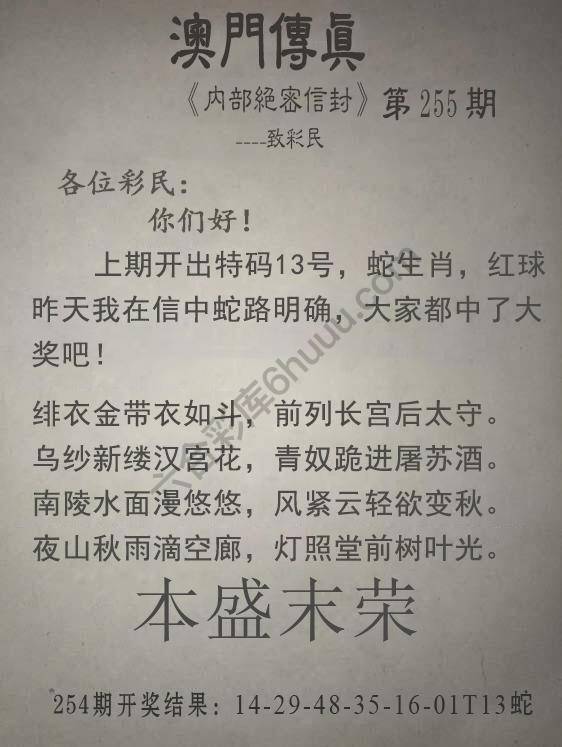 澳門傳眞
《内部絕密信封》第255期
----致彩民
各位彩民：
你们好！
上期开出特码13号，蛇生肖，红球
昨天我在信中蛇路明确，大家都中了大
奖吧！
绯衣金带衣如斗，前列长宫后太守。
乌纱新缕汉宫花，青奴跪进屠苏酒。
南陵水面漫悠悠，风紧云轻欲变秋。
夜山秋雨滴空廊，灯照堂前树叶光。
本盛末荣
254期开奖结果：14-29-48-35-16-01T13蛇
六合彩库6huuu.com